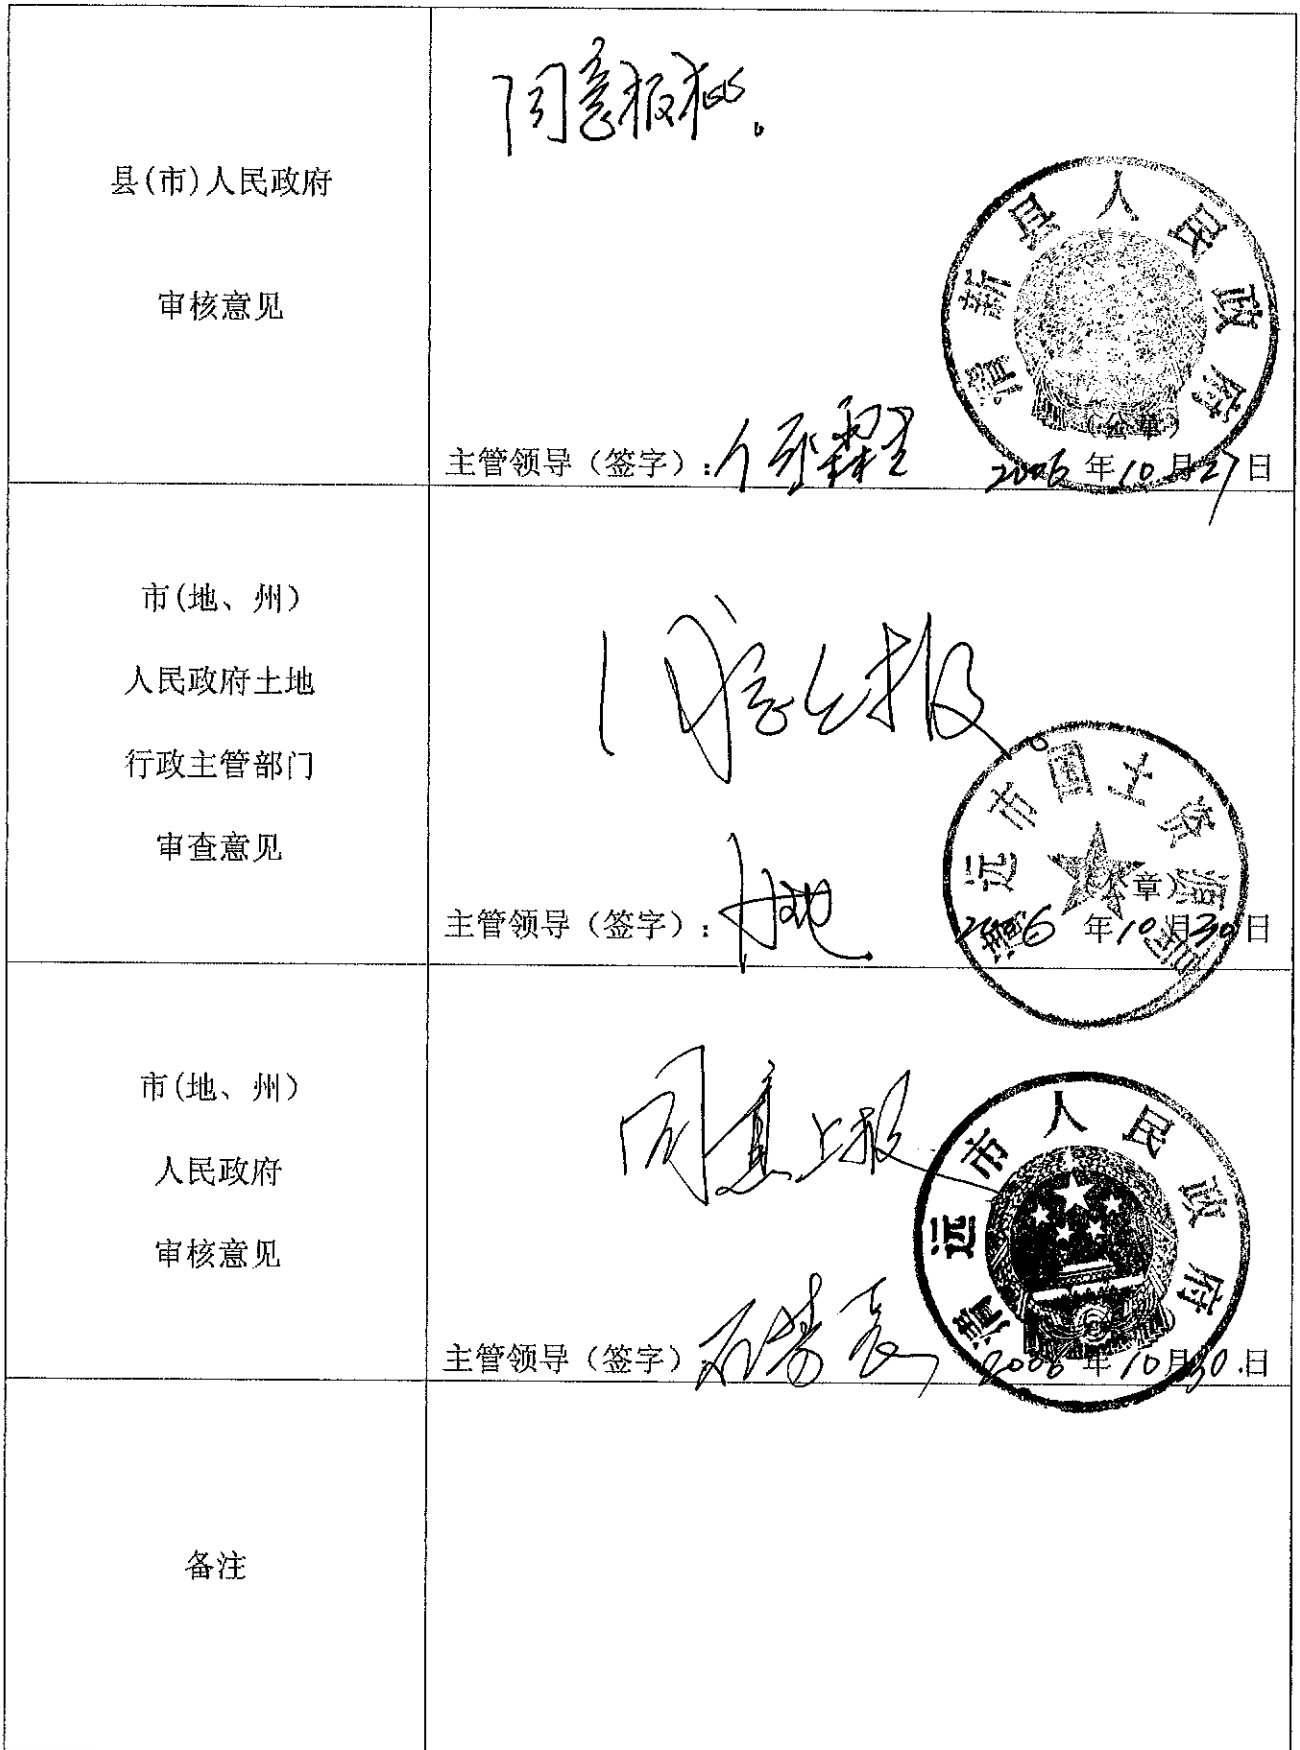 县(市)人民政府
审核意见
同意报批。
清新县人民政府
(公章)
主管领导（签字）：
2006年10月27日
市(地、州）
人民政府土地
行政主管部门
审查意见
同意上报。
清远市国土资源局
(公章)
主管领导（签字）：
2006年10月30日
市(地、州）
人民政府
审核意见
同意上报
清远市人民政府
主管领导（签字）
2006年10月30日
备注